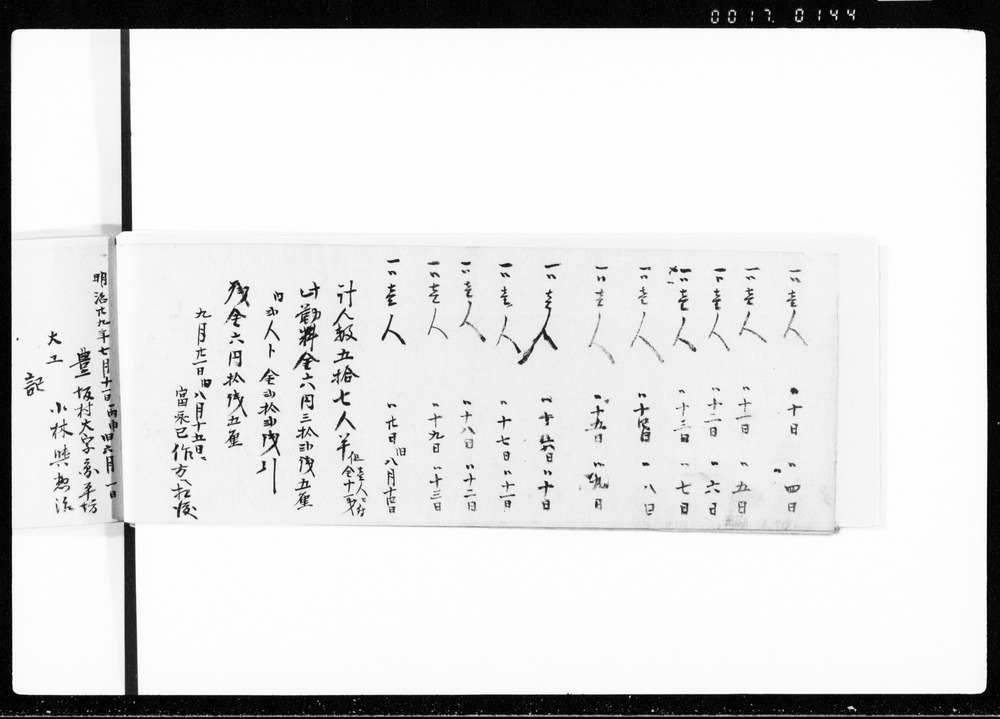 0017. 0144
一〃壱人 〃十日 〃四日
一〃壱人 〃十一日 〃五日
一〃壱人 〃十二日 〃六日
一〃壱人 〃十三日 〃七日
一〃壱人 〃十四日 〃八日
一〃壱人 〃十五日 〃九日
一〃壱人 〃十六日 〃十日
一〃壱人 〃十七日 〃十一日
一〃壱人 〃十八日 〃十二日
一〃壱人 〃十九日 〃十三日
一〃壱人 〃廿日 旧八月十四日
計人数五拾七人半 但壱人ニ付金十一銭
此勘料金六円三拾弐銭五厘
内弐人ト金弐拾弐銭引
残金六円拾銭五厘
九月廿一日旧八月十五日
作方ヘ払渡
明治廿九年七月十一日丙申旧六月一日
豊坂村大字
大工 小林
記